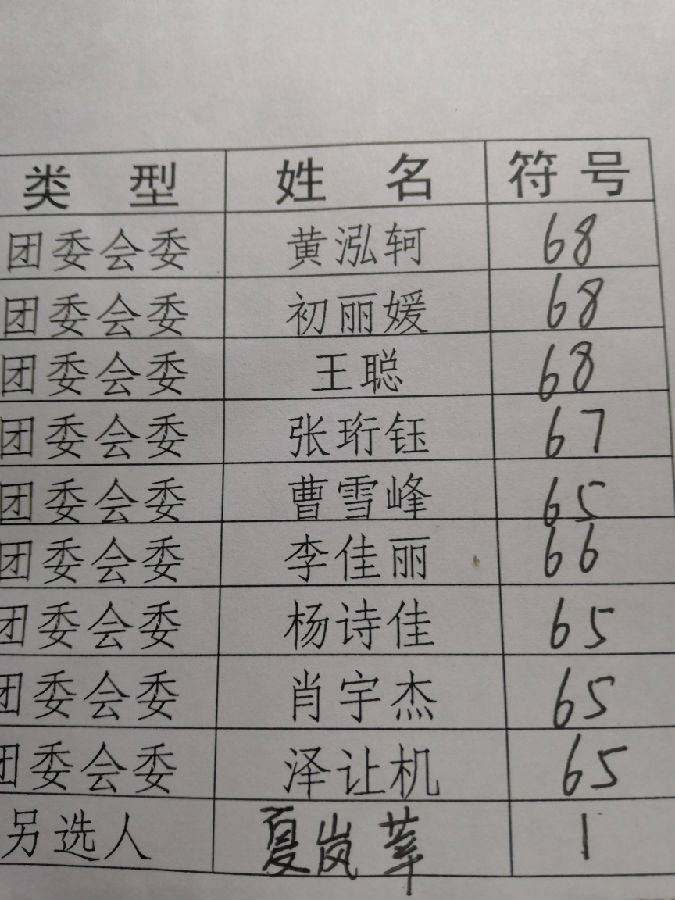 类 型 姓 名 符 号
团委会委 黄泓轲 68
团委会委 初丽媛 68
团委会委 王聪 68
团委会委 张珩钰 67
团委会委 曹雪峰 65
团委会委 李佳丽 66
团委会委 杨诗佳 65
团委会委 肖宇杰 65
团委会委 泽让机 65
另选人 夏岚莘 1